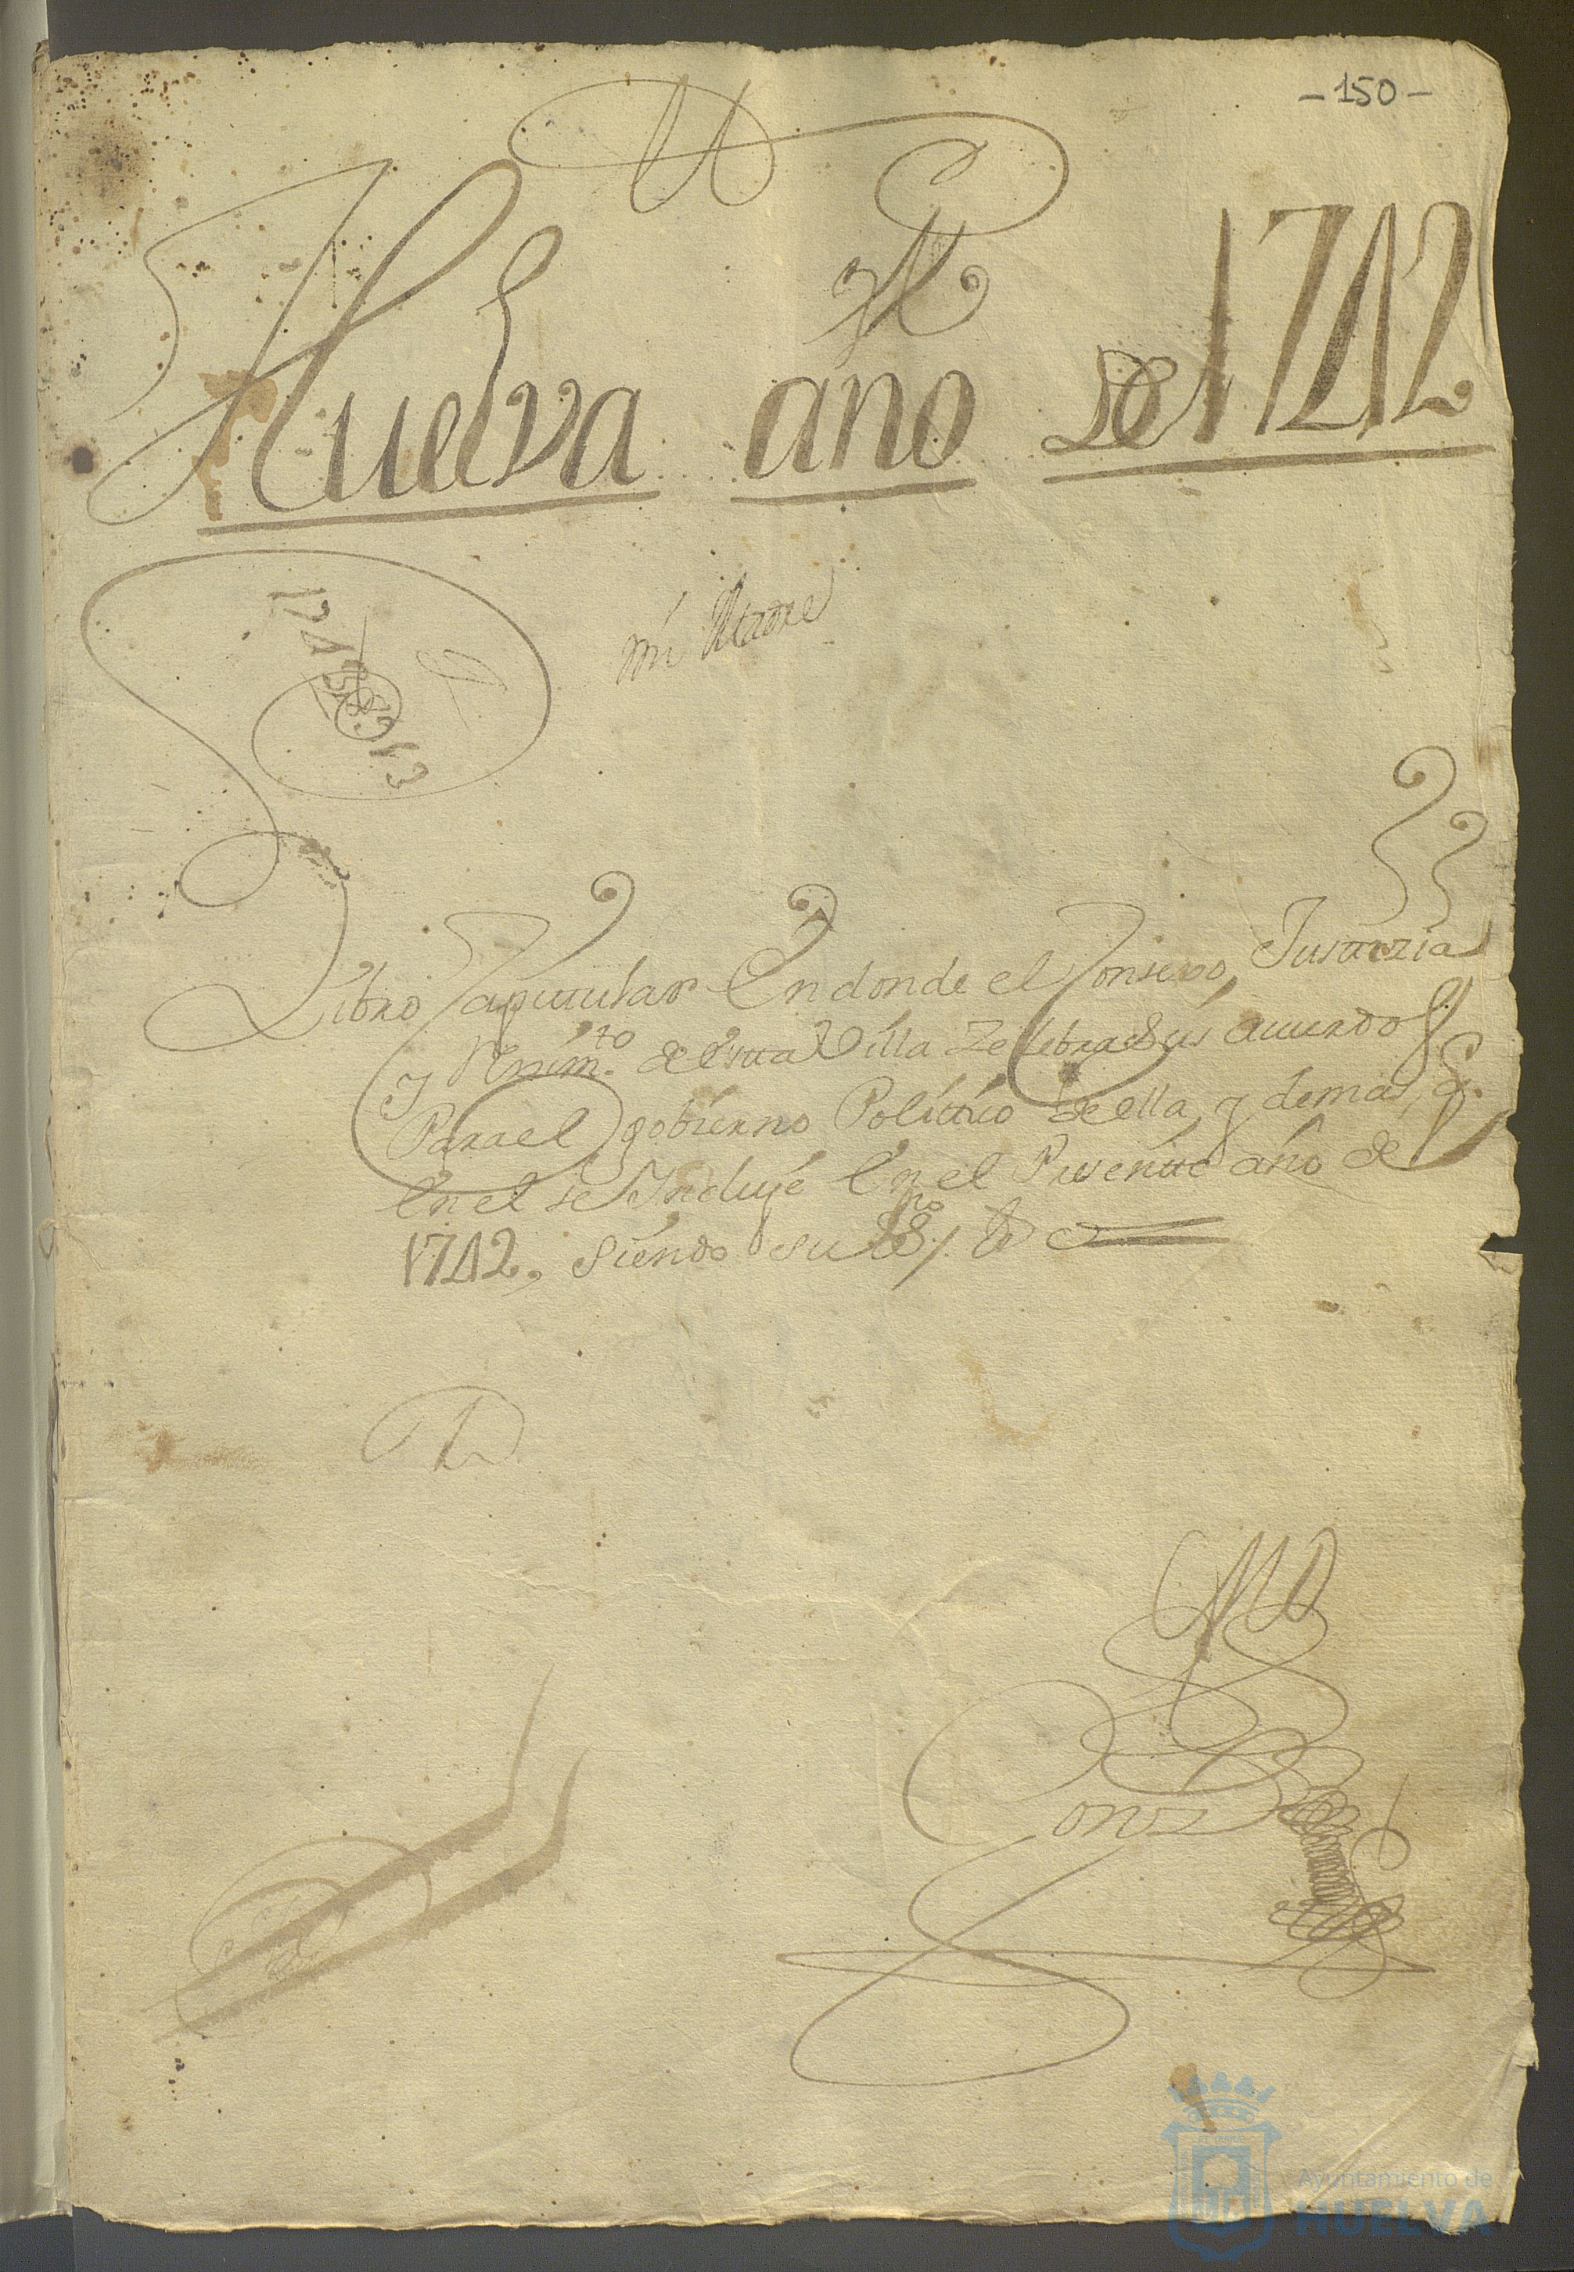 -150-
Huelva año de 1742
mi
Libro Capitular En donde el Consexo, Justizia
y Reximto. de Esta Villa Zelebra Sus acuerdos
Para el gobierno Polittico de ella, y demas, q.
En el se Incluye En el Presentte año de
1742, Siendo su Esno.
Gonz
Ayuntamiento de
HUELVA